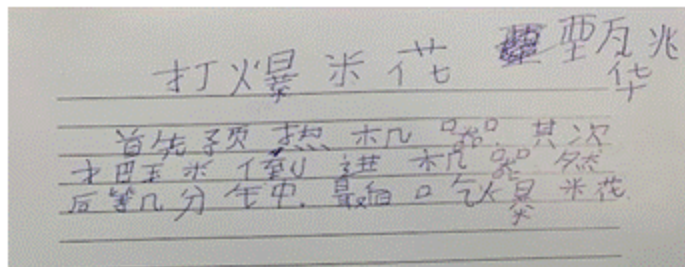 打爆米花 甄兆
华
首先预热机器. 其次
把玉米倒进机器 然
后等几分钟. 最后口气爆米花